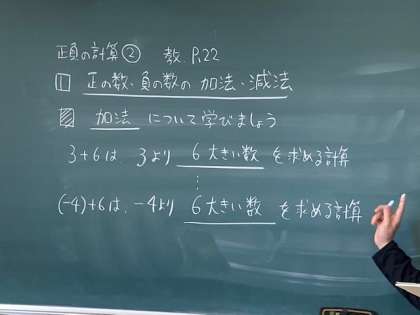 正負の計算② 教 P.22
1 正の数、負の数の 加法・減法
加法 について学びましょう
3+6は、3より 6大きい数 を求める計算
⋮
(-4)+6は、-4より 6大きい数 を求める計算